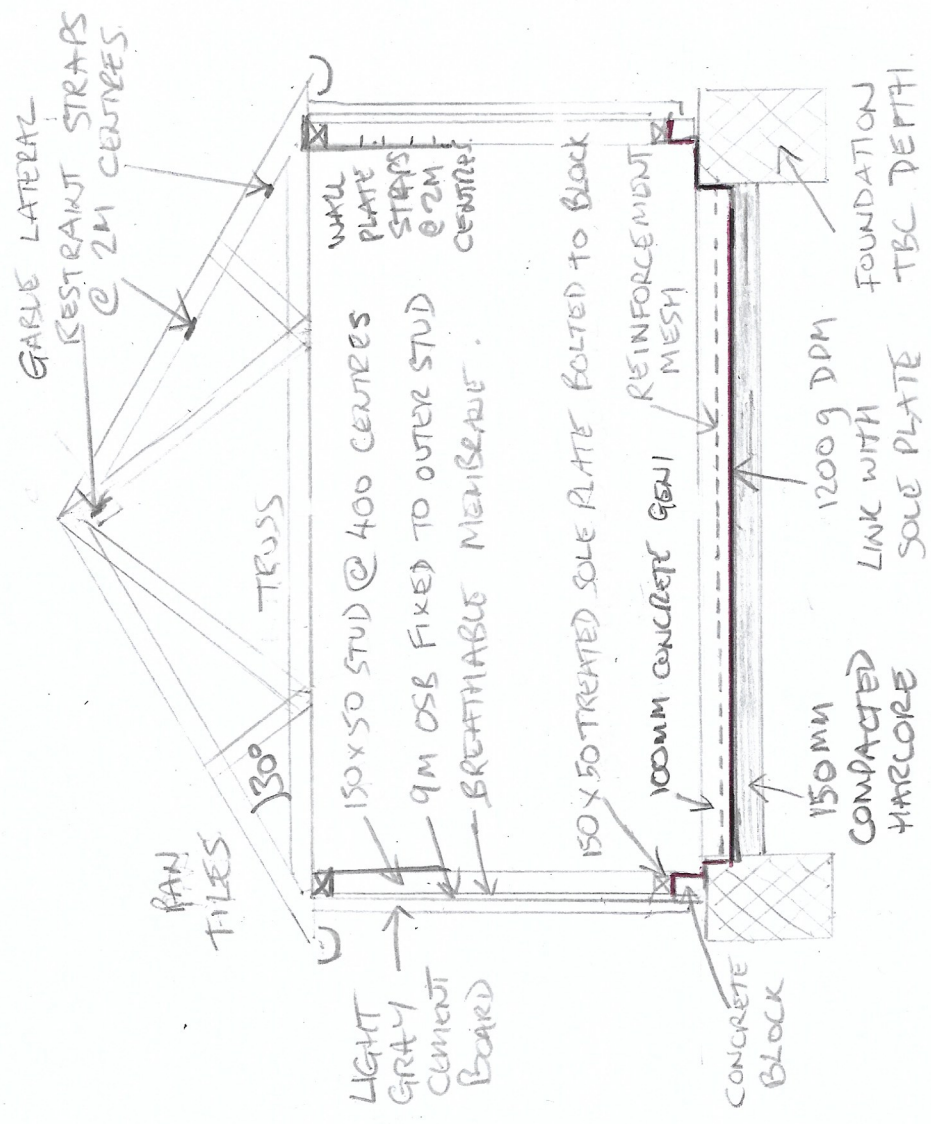 GABLE LATERAL
RESTRAINT STRAPS
@ 2M CENTRES
PAN
TILES
30°
TRUSS
LIGHT
GRAY
CEMENT
BOARD
150 x 50 STUD @ 400 CENTRES
9M OSB FIXED TO OUTER STUD
BREATHABLE MEMBRANE.
WALL
PLATE
STRAPS
@ 2M
CENTRES
150 x 50 TREATED SOLE PLATE BOLTED TO BLOCK
100MM CONCRETE GEN1
REINFORCEMENT
MESH
CONCRETE
BLOCK
150MM
COMPACTED
HARCORE
1200g DPM
LINK WITH
SOLE PLATE
FOUNDATION
TBC DEPTH